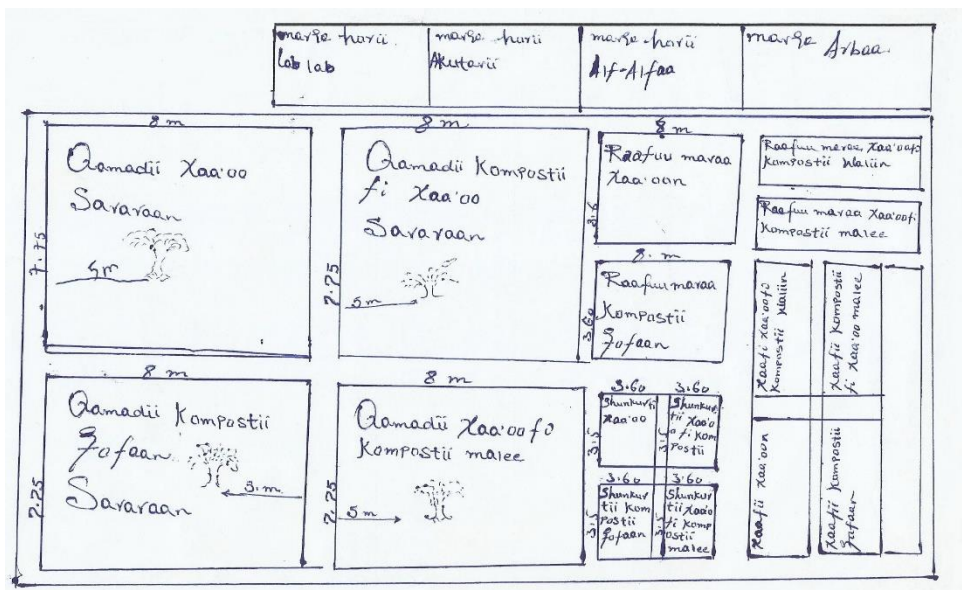 marga horii
Lab lab
marga horii
Akutarii
marga horii
Alf-Alfaa
marga Arbaa
8 m
Qamadii Xaa'oo
Sararaan
7.75
5m
8 m
Qamadii Kompostii
fi Xaa'oo
Sararaan
7.75
5m
8 m
Raafuu maraa
Xaa'oon
3.6
8. m
Raafuu maraa
Kompostii
Qofaan
3.60
Raafuu maraa, Xaa'oofi
Kompostii Waliin
Raafuu maraa Xaa'oofi
Kompostii malee
Xaafi Xaa'oofi
Kompostii Waliin
Xaafii Kompostii
fi Xaa'oo malee
8 m
Qamadii Kompostii
Qofaan
Sararaan
7.75
5. m
8 m
Qamadii Xaa'oofi
Kompostii malee
7.25
5m
3.60
Shunkurti
Xaa'oo
3.5
3.60
Shunkur
tii Xaa'o
o fi Kom
postii
3.5
3.60
Shunkur
tii Kom
postii
Qofaan
3.5
3.60
Shunkur
tii Xaa'o
fi Komp
ostii
malee
3.5
Xaafii Xaa'oon
Xaafii Kompostii
Qofaan